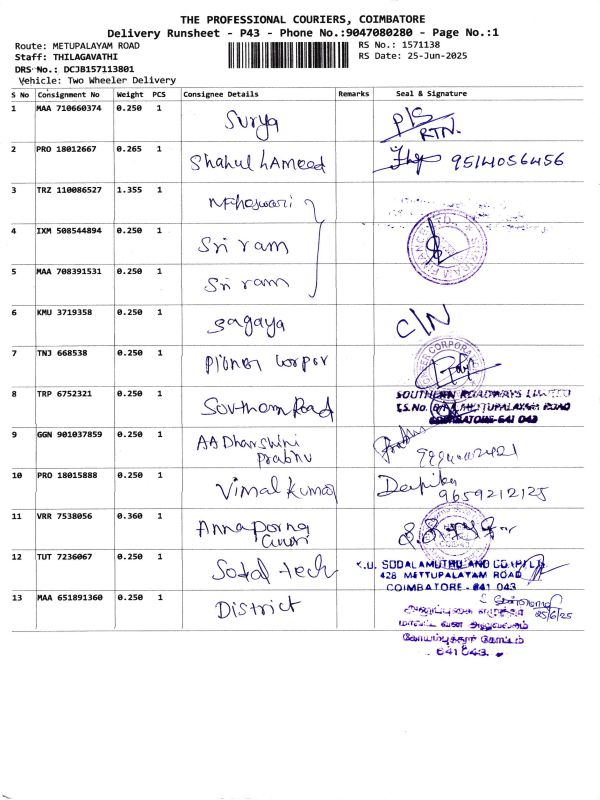 THE PROFESSIONAL COURIERS, COIMBATORE
Delivery Runsheet - P43 - Phone No.:9047080280 - Page No.:1
Route: METUPALAYAM ROAD
RS No.: 1571138
Staff: THILAGAVATHI
RS Date: 25-Jun-2025
DRS No.: DCJB157113801
Vehicle: Two Wheeler Delivery
S No Consignment No Weight PCS Consignee Details Remarks Seal & Signature
1 MAA 710660374 0.250 1 Surya P/S
RTN.
2 PRO 18012667 0.265 1 Shahul hAmeed 9514056456
3 TRZ 110086527 1.355 1
4 IXM 508544894 0.250 1 Sri ram
5 MAA 708391531 0.250 1 Sri ram
6 KMU 3719358 0.250 1 Sagaya C/N
7 TNJ 668538 0.250 1
8 TRP 6752321 0.250 1 Southern Road SOUTHERN ROADWAYS LIMITED
METTUPALAYAM ROAD
COIMBATORE-641 043
9 GGN 901037859 0.250 1 AA Dharshini
Prabhu
10 PRO 18015888 0.250 1 Vimal Kumar Deepika
9659212125
11 VRR 7538056 0.360 1 Annaporna
12 TUT 7236067 0.250 1 Sodal tech K.U. SODALAMUTHU AND CO.(P) LTD.
428 METTUPALAYAM ROAD
COIMBATORE - 641 043
13 MAA 651891360 0.250 1 District
25/6/25
மாவட்ட வன அலுவலகம்
கோயம்புத்தூர் கோட்டம்
641 043.